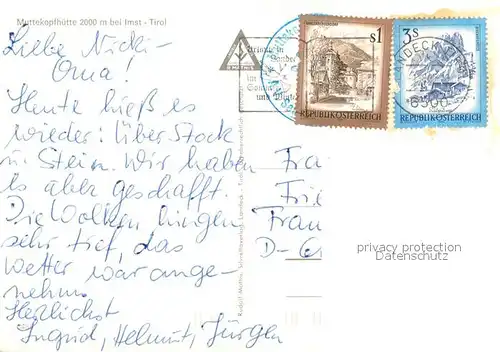 Muttekopfhütte 2000 m bei Imst - Tirol
Liebe Nicki-
Oma!
Heute hieß es
wieder: über Stock
u. Stein. Wir haben
es aber geschafft.
Die Wolken hingen
sehr tief, das
Wetter war ange-
nehm.
Herzlichst
Ingrid, Helmut, Jürgen
im
und Winter
S1
REPUBLIK ÖSTERREICH
3S
REPUBLIK ÖSTERREICH
LANDECK
6500
Fra
Frie
Frau
D-6
privacy protection
Datenschutz